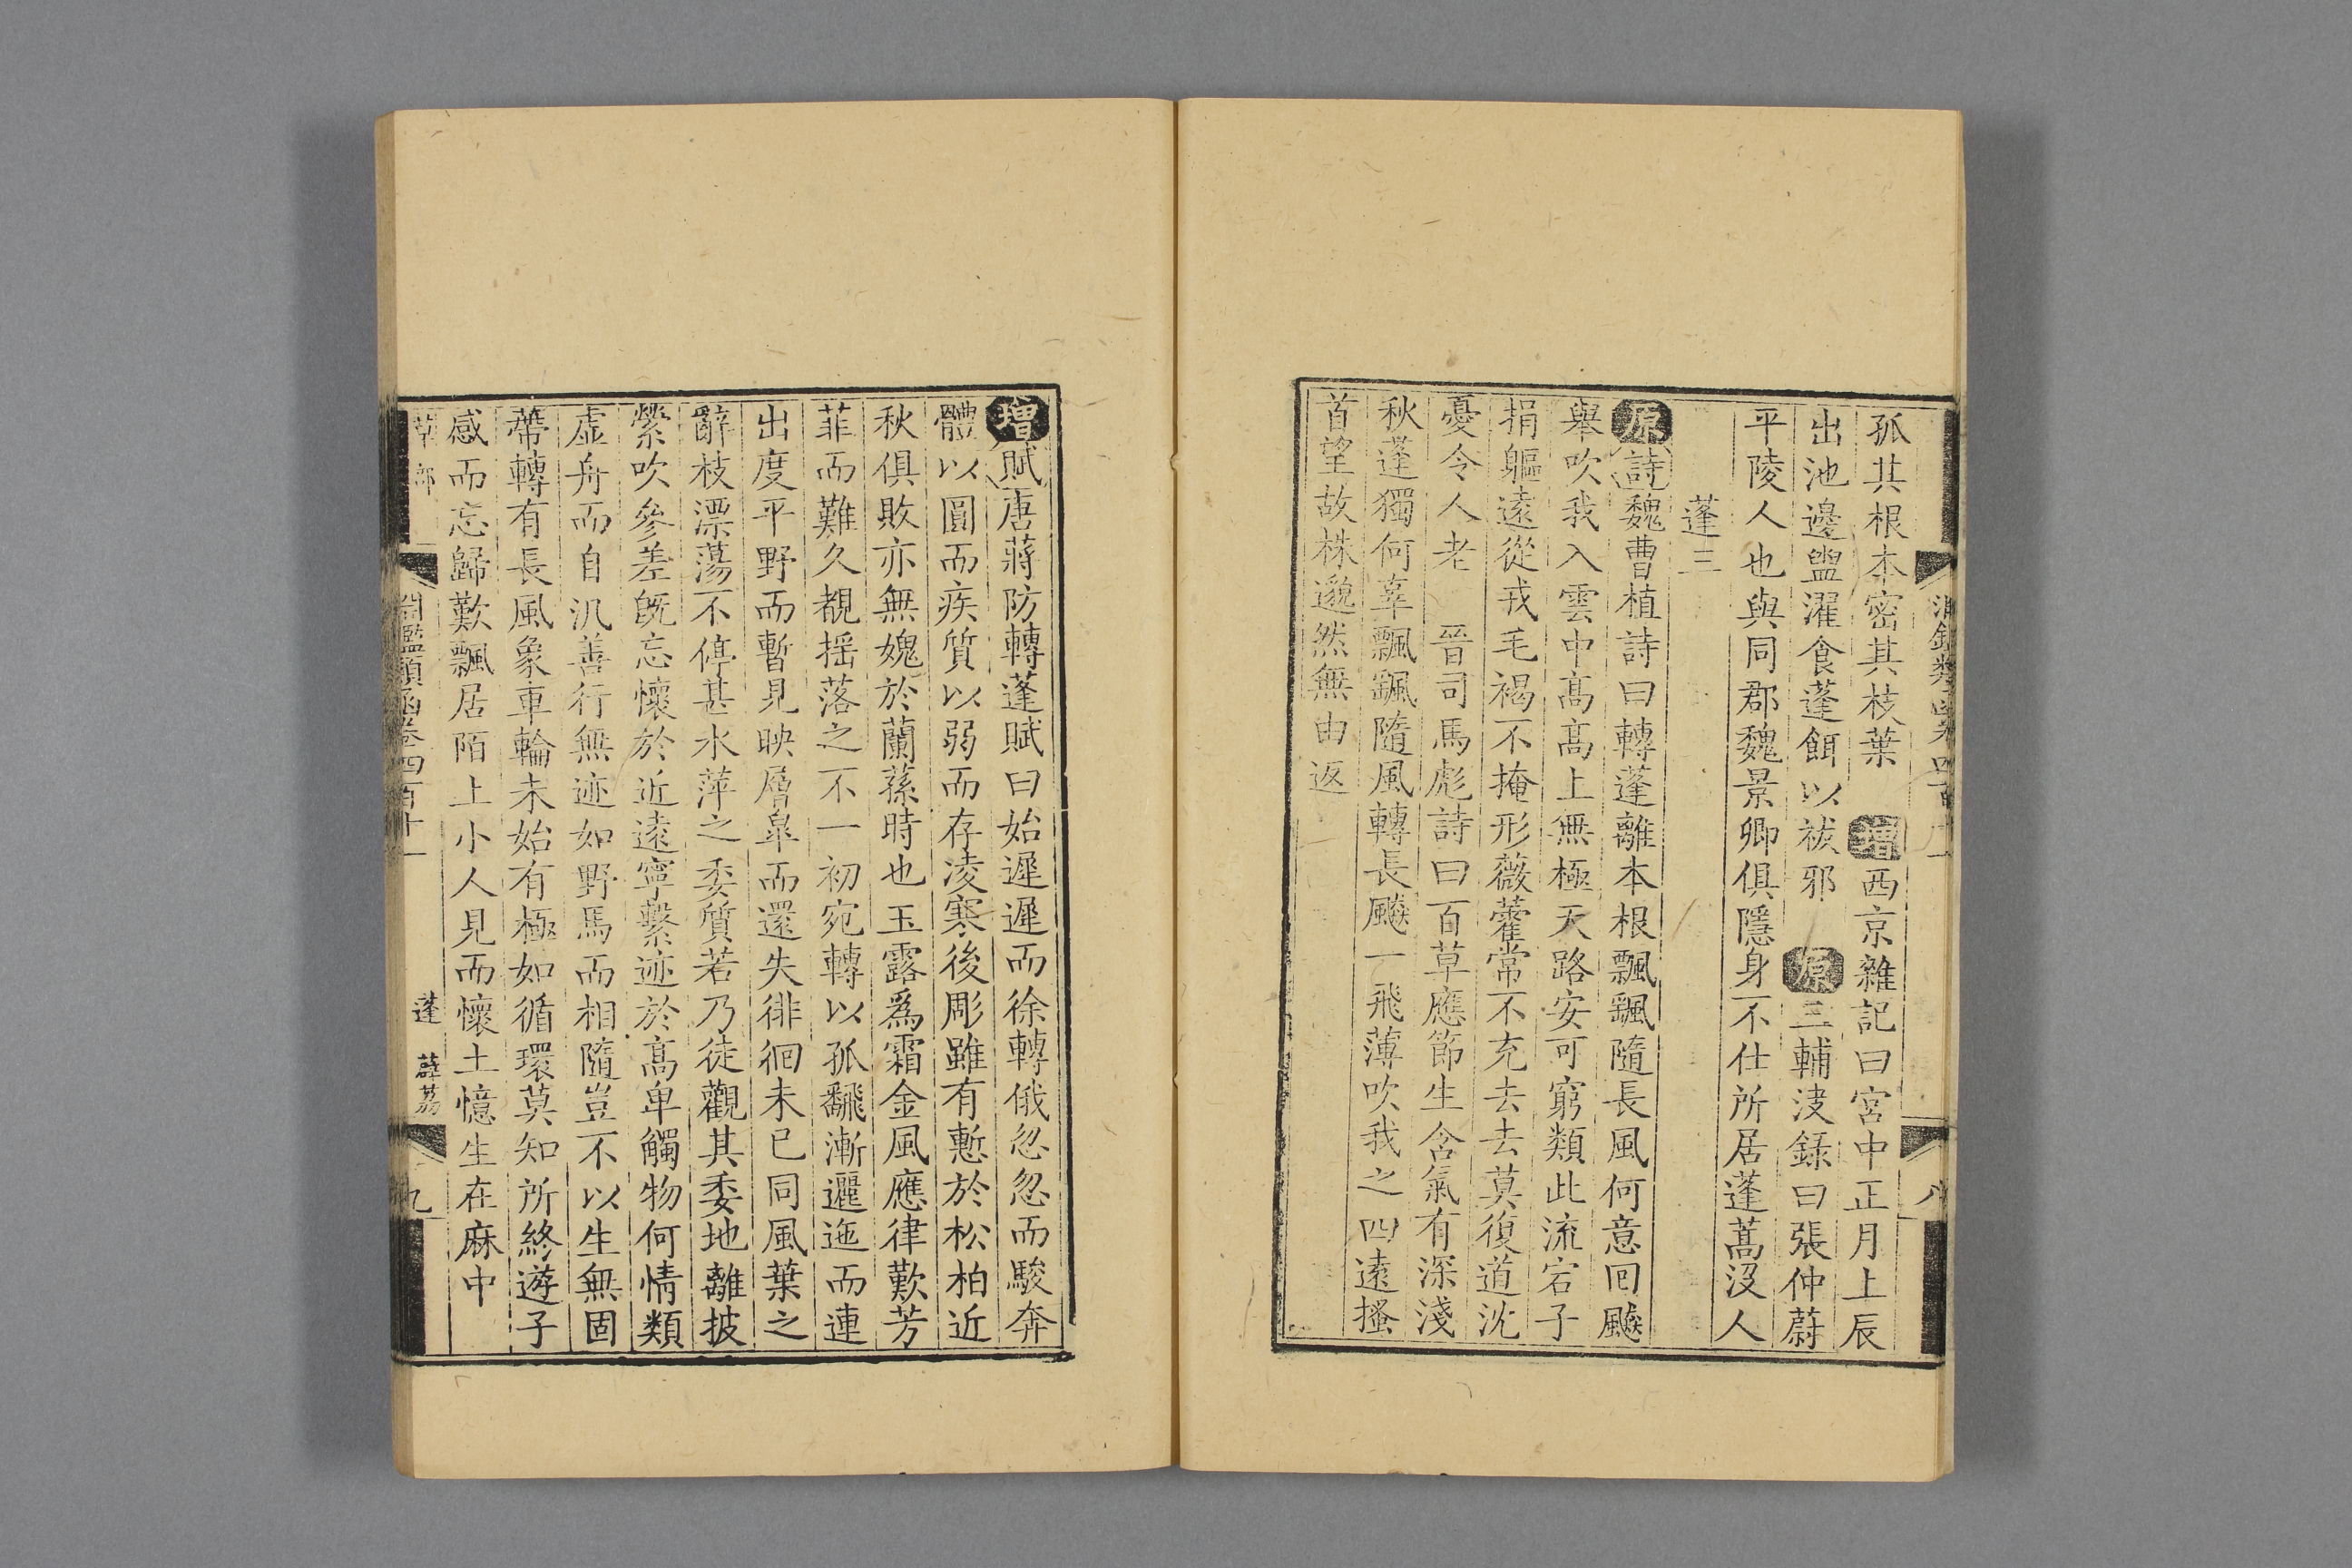 淵鑑類函卷四百十一
八
孤其根本密其枝葉　增西京雜記曰宮中正月上辰
出池邊盥濯食蓬餌以祓邪　原三輔決錄曰張仲蔚
平陵人也與同郡魏景卿俱隱身不仕所居蓬蒿沒人
蓬三
原詩魏曹植詩曰轉蓬離本根飄颻隨長風何意回飇
舉吹我入雲中高高上無極天路安可窮類此流宕子
捐軀遠從戎毛褐不掩形薇藿常不充去去莫復道沈
憂令人老　晉司馬彪詩曰百草應節生含氣有深淺
秋蓬獨何辜飄颻隨風轉長飇一飛薄吹我之四遠搔
首望故株邈然無由返
增賦唐蔣防轉蓬賦曰始遲遲而徐轉俄忽忽而駿奔
體以圓而疾質以弱而存凌寒後彫雖有慙於松柏近
秋俱敗亦無媿於蘭蓀時也玉露爲霜金風應律歎芳
菲而難久覩揺落之不一初宛轉以孤翻漸邐迤而連
出度平野而暫見映層皐而還失徘徊未已同風葉之
辭枝漂蕩不停甚水萍之委質若乃徒觀其委地離披
縈吹參差旣忘懷於近遠寧繫迹於高卑觸物何情類
虛舟而自汎善行無迹如野馬而相隨豈不以生無固
蔕轉有長風象車輪未始有極如循環莫知所終遊子
感而忘歸歎飄居陌上小人見而懷土憶生在麻中
草部
淵鑑類函卷四百十一
蓬　薜荔
九